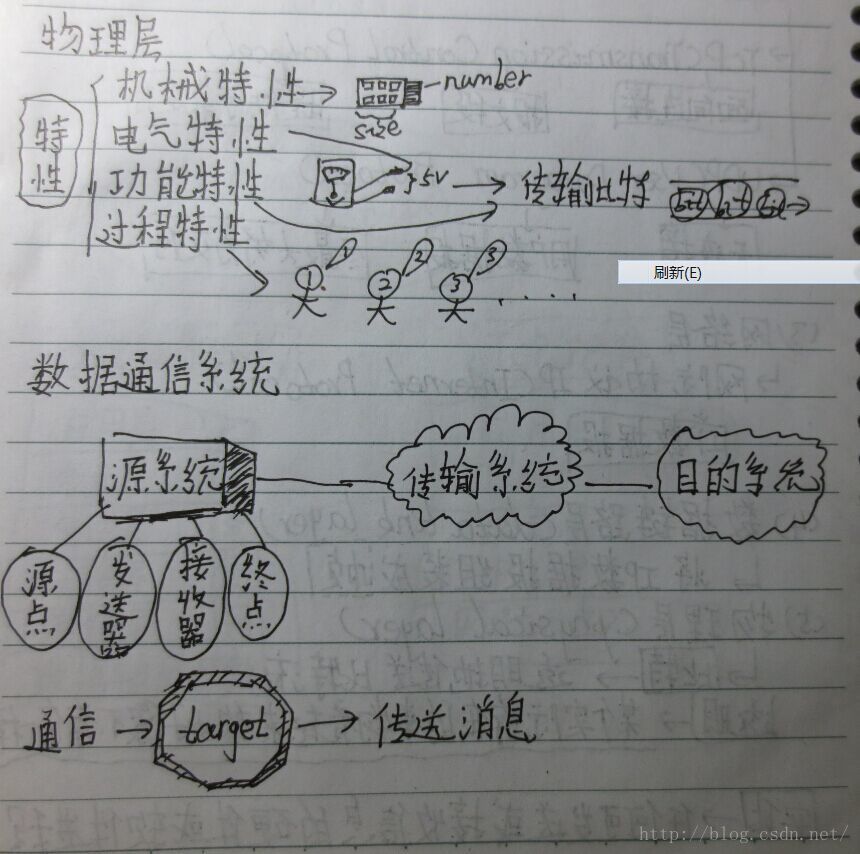 物理层
特性
机械特性 → number
size
电气特性
功能特性 }5V → 传输比特 bit bit bit →
过程特性
① 1 ② 2 ③ 3 ....
刷新(E)
数据通信系统
源系统 传输系统 目的系统
源点 发送器 接收器 终点
通信 → target → 传送消息
http://blog.csdn.net/